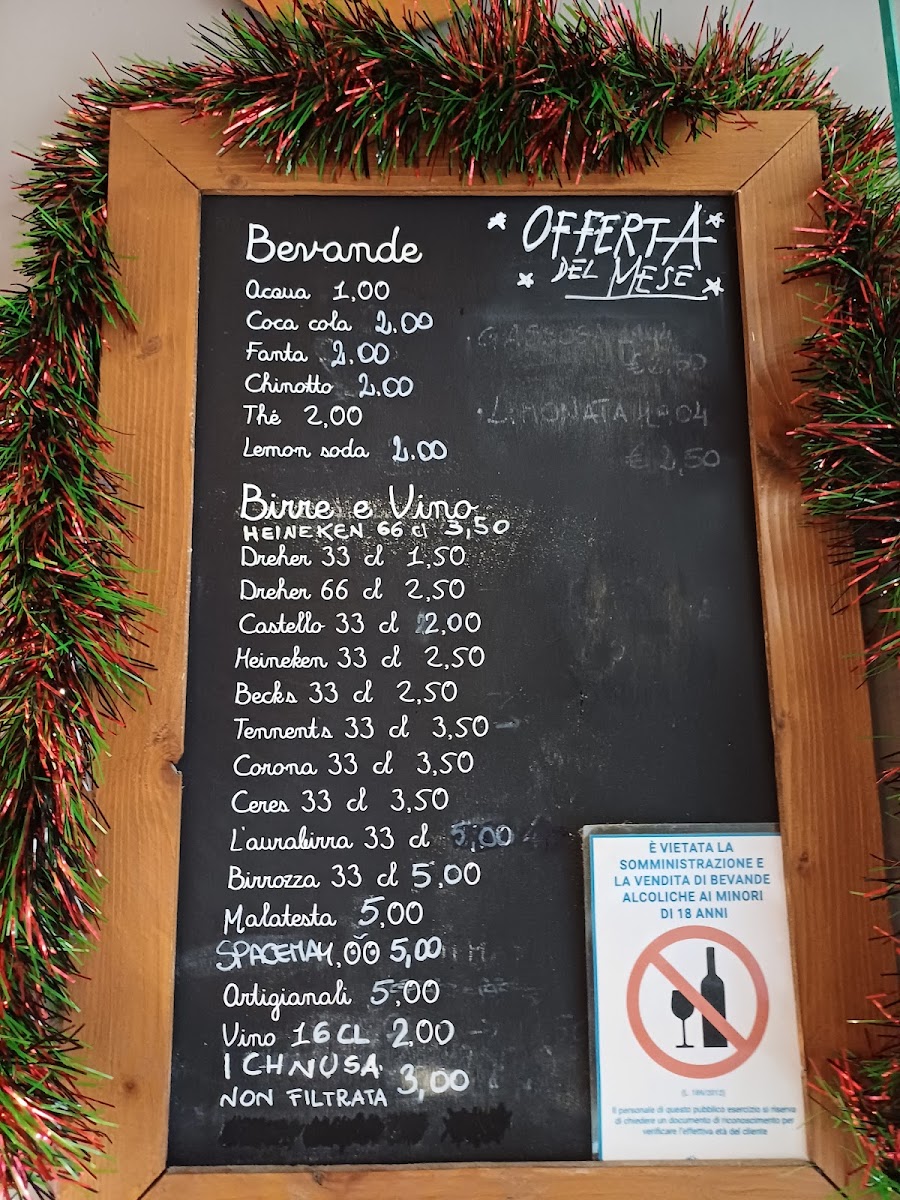 Bevande
Acqua 1,00
Coca cola 2.00
Fanta 2.00
Chinotto 2.00
Thé 2,00
Lemon soda 2.00
Birre e Vino
HEINEKEN 66 cl 3,50
Dreher 33 cl 1,50
Dreher 66 cl 2,50
Castello 33 cl 2,00
Heineken 33 cl 2,50
Becks 33 cl 2,50
Tennents 33 cl 3,50
Corona 33 cl 3,50
Ceres 33 cl 3,50
L'aurabirra 33 cl 5,00
Birrozza 33 cl 5,00
Malatesta 5,00
5,00
Artigianali 5,00
Vino 16 CL 2,00
ICHNUSA
NON FILTRATA 3,00
OFFERTA
DEL MESE
GASSOSA
€ 2,50
LIMONATA
€ 2,50
È VIETATA LA
SOMMINISTRAZIONE E
LA VENDITA DI BEVANDE
ALCOLICHE AI MINORI
DI 18 ANNI
(L. 189/2012)
Il personale di questo pubblico esercizio si riserva
di chiedere un documento di riconoscimento per
verificare l'effettiva età del cliente